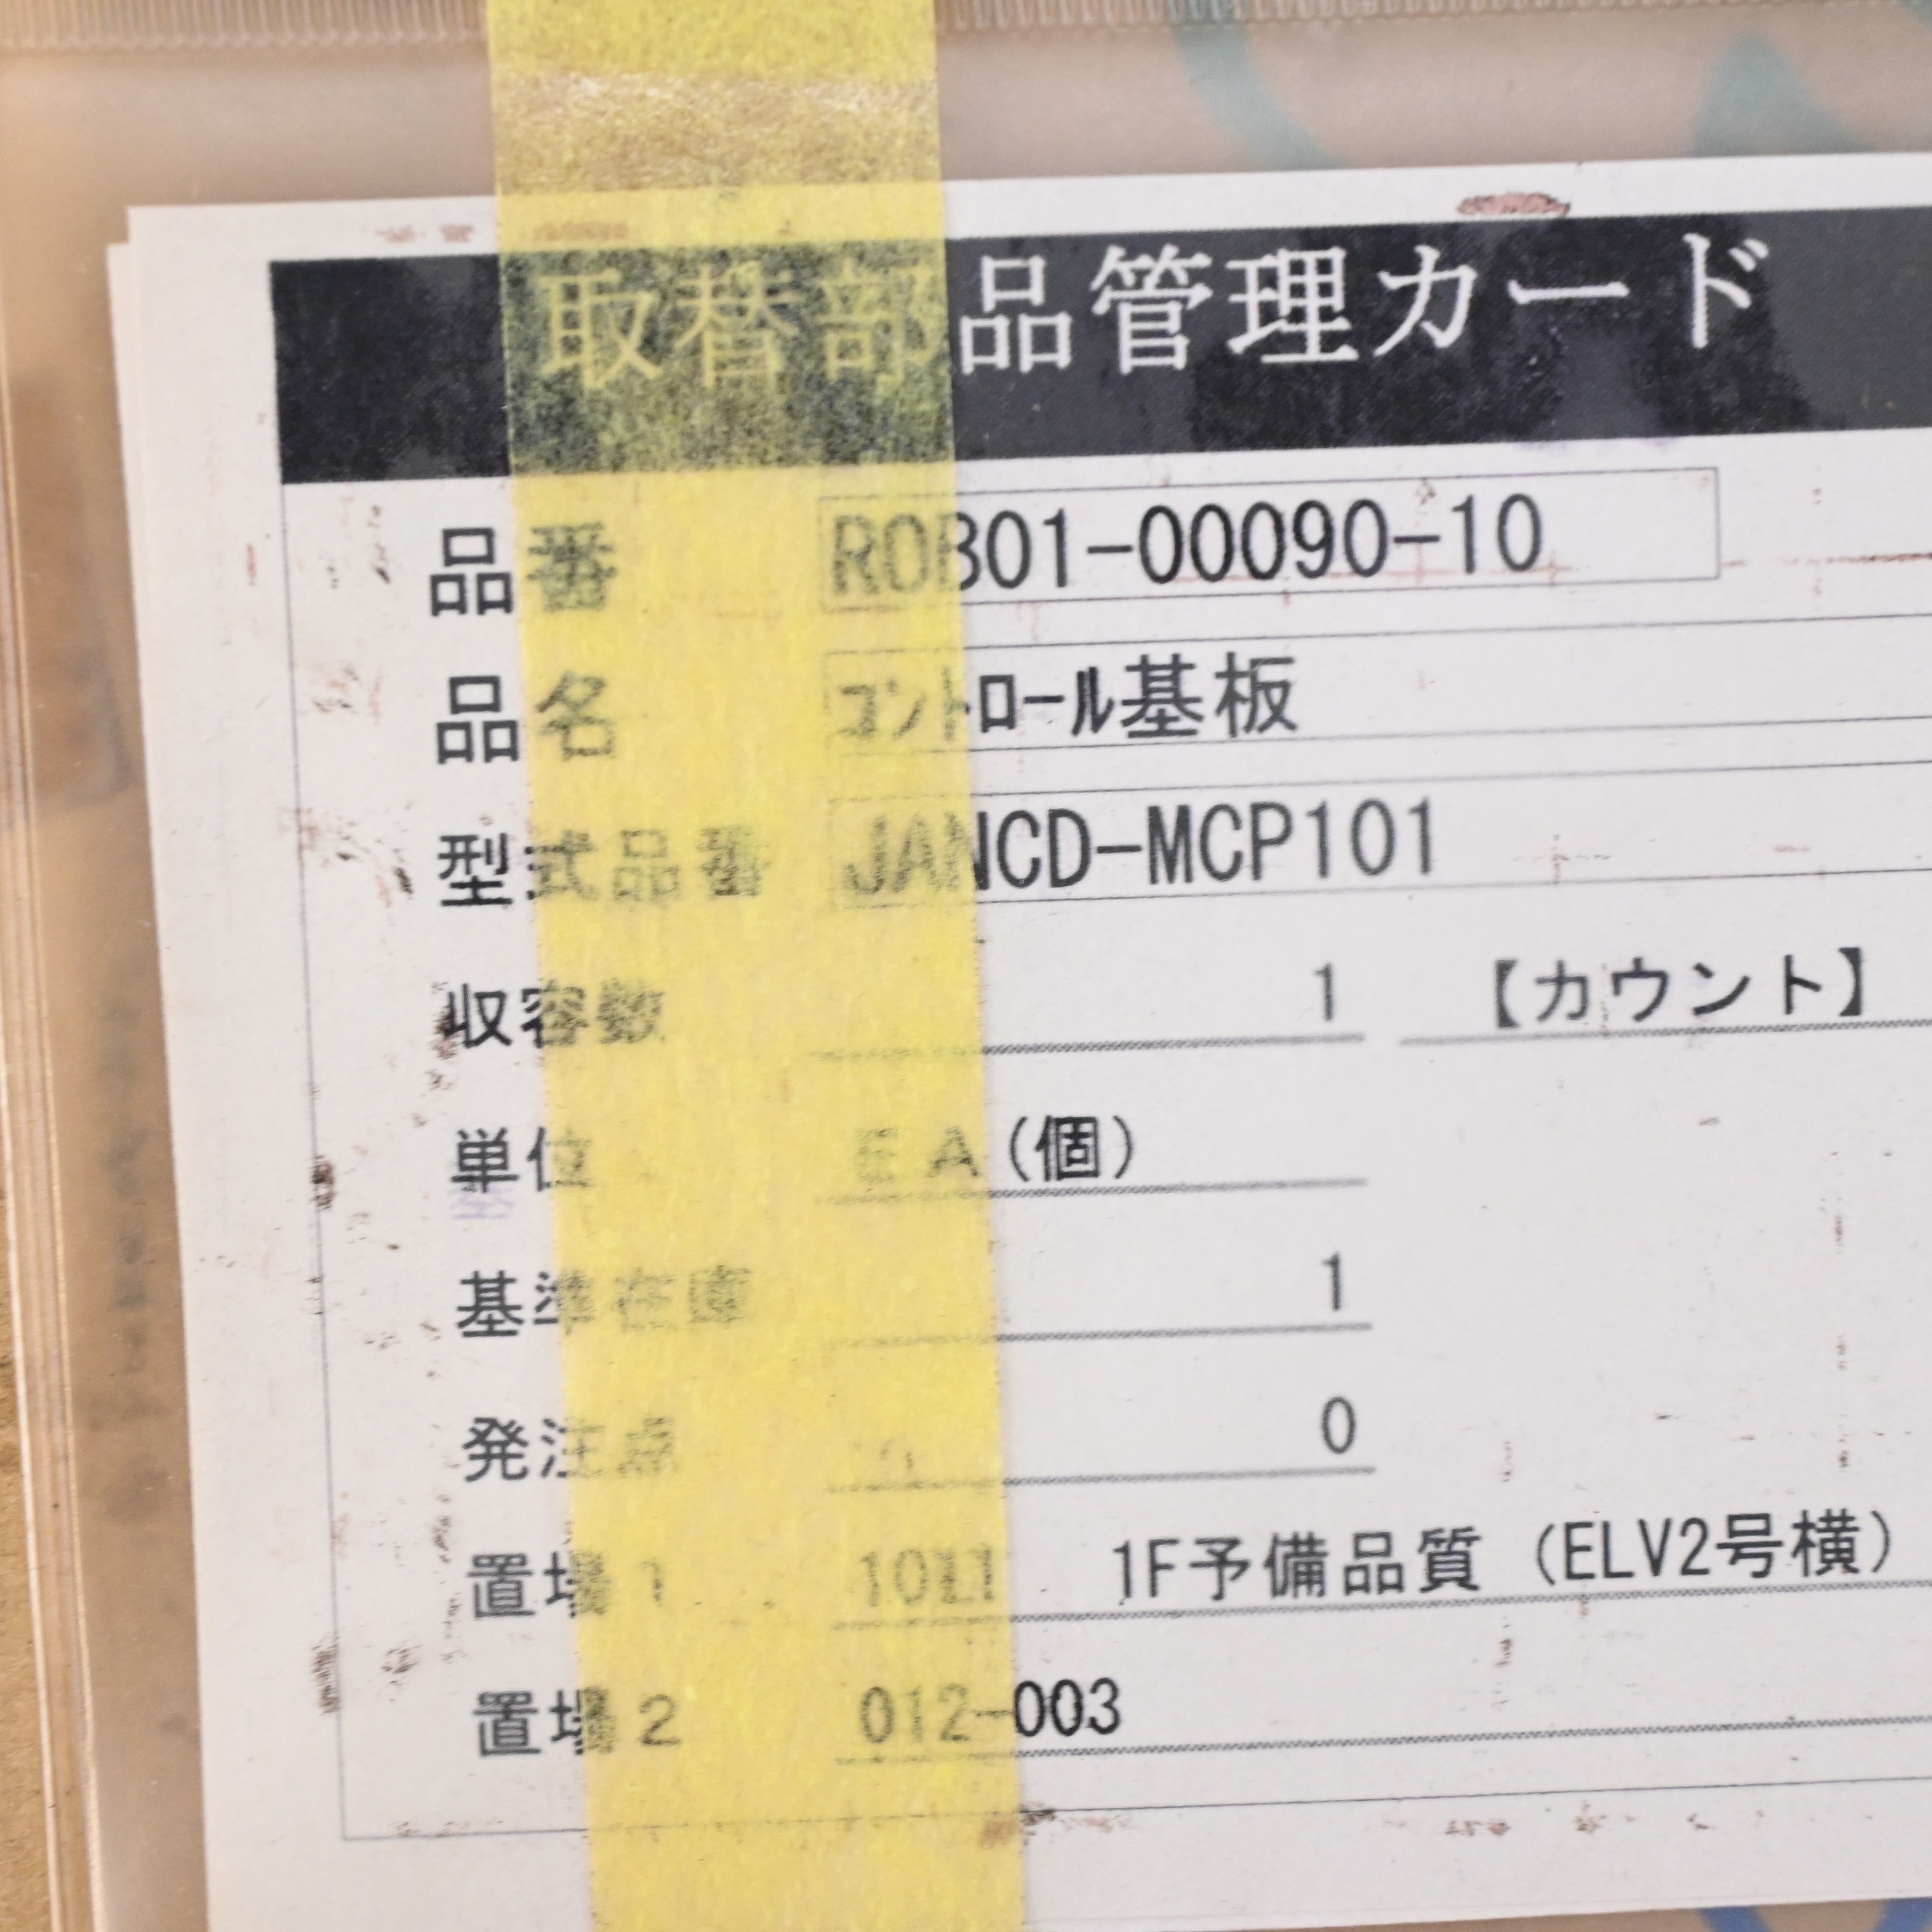 取替部品管理カード
品番 ROB01-00090-10
品名 ｺﾝﾄﾛｰﾙ基板
型式品番 JANCD-MCP101
収容数 1 【カウント】
単位 ＥＡ(個)
基準在庫 1
発注点 0
置場１ 10L1 1F予備品質（ELV2号横）
置場２ 012-003